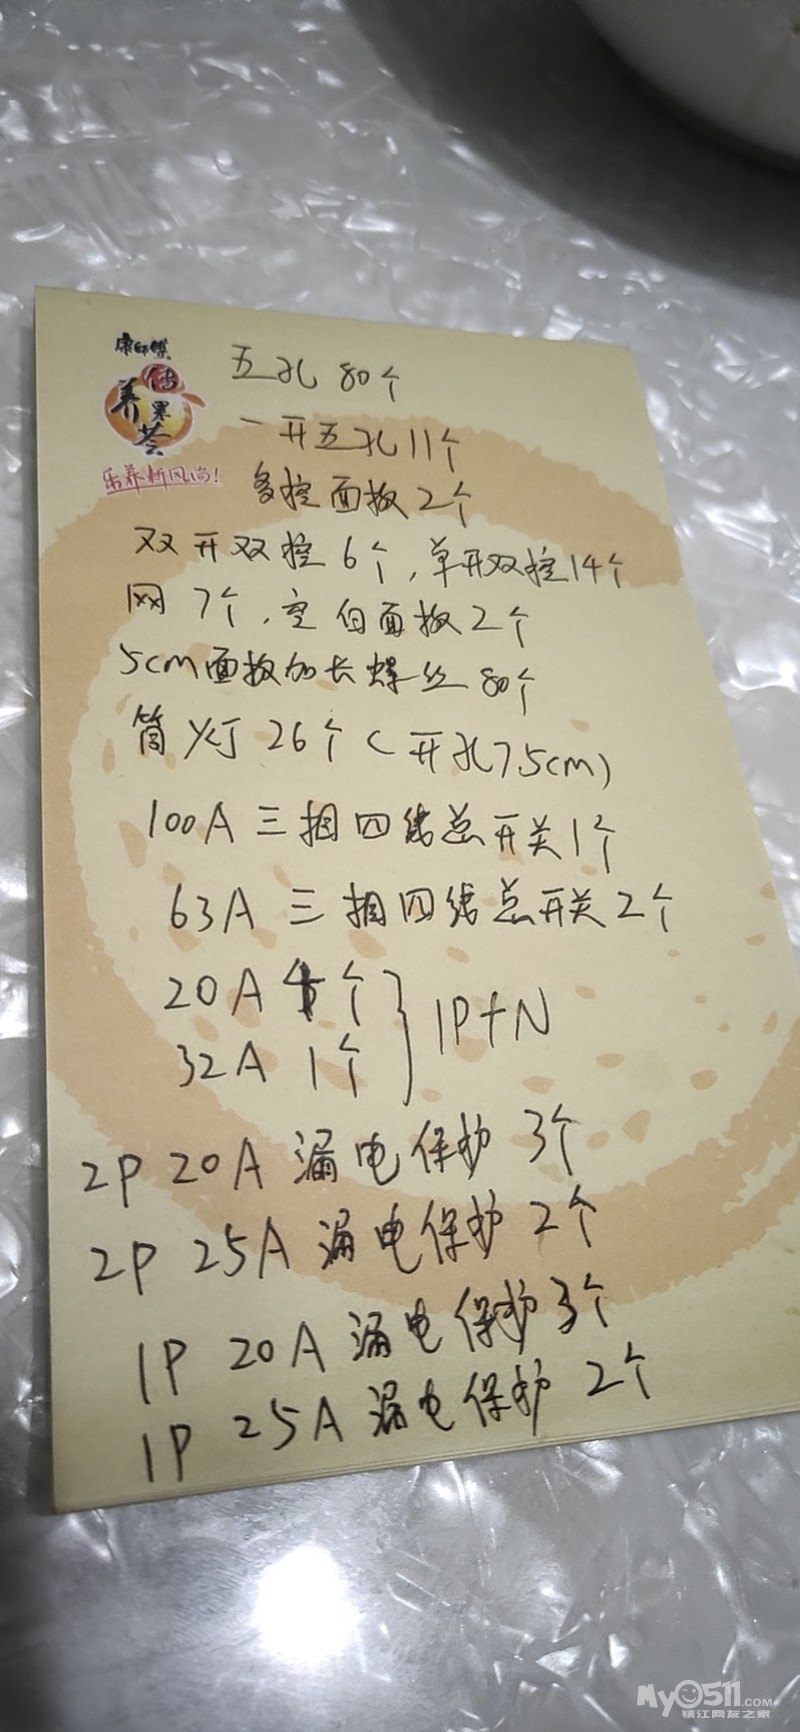 康师傅
传
养
果
荟
乐养新风尚!
五孔 80个
一开五孔11个
多控面板2个
双开双控6个,单开双控14个
网 7个,空白面板2个
5cm面板加长螺丝80个
筒灯26个(开孔7.5cm)
100A三相四线总开关1个
63A三相四线总开关2个
20A 4个
32A 1个
1P+N
2P 20A 漏电保护 3个
2P 25A 漏电保护 2个
1P 20A 漏电保护3个
1P 25A 漏电保护 2个
My0511.com
镇江网友之家